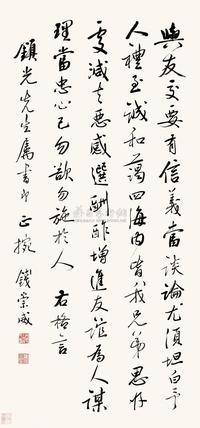 與友交要有信義當談論尤須坦白乎
人禮至誠和藹四海內皆我兄弟思好
更減去惡感選酬酢增進友誼為人謀
理當忠心己勿欲勿施於人 右格言
鎮光先生屬書即正挽 錢崇威